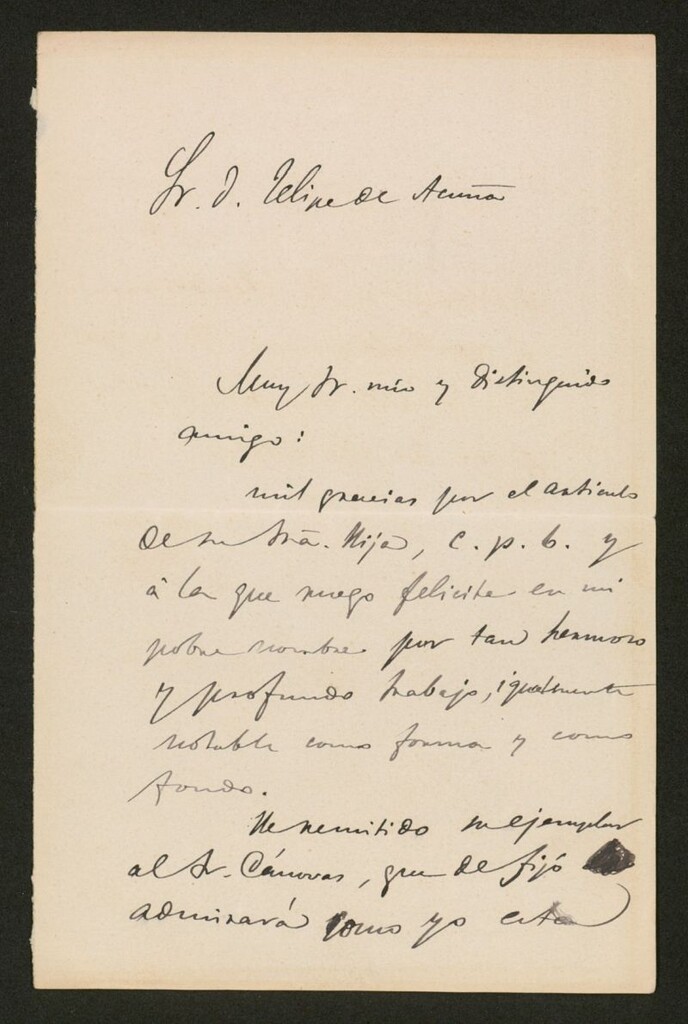 Sr. D. Felipe de Acuña
Muy Sr. mio y distinguido
amigo:
mil gracias por el articulo
de su Sra. Hija, c. p. b. y
á la que ruego felicite en mi
pobre nombre por tan hermoso
y profundo trabajo, igualmente
notable como forma y como
fondo.
He remitido su ejemplar
al Sr. Cánovas, que de fijo
admirará como yo esta